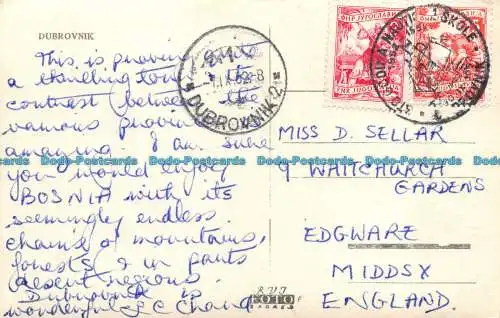 DUBROVNIK
This is proving
a thrilling Tour the
contrast between the
various provinces
amazing. I am sure
you would enjoy
BOSNIA with its
seemingly endless
chains of mountains,
forests & in parts
desert regions.
Dubrovnik is
wonderful
DUBROVNIK 2
ФНР ЈУГОСЛАВИЈА
FNR JUGOSLAVIJA
MISS D. SELLAR
9 WHITCHURCH
GARDENS
EDGWARE
MIDDSX
ENGLAND.
FOTO
ZAGREB
Bobo-Postcards Bobo-Postcards Bobo-Postcards Bobo-Postcards